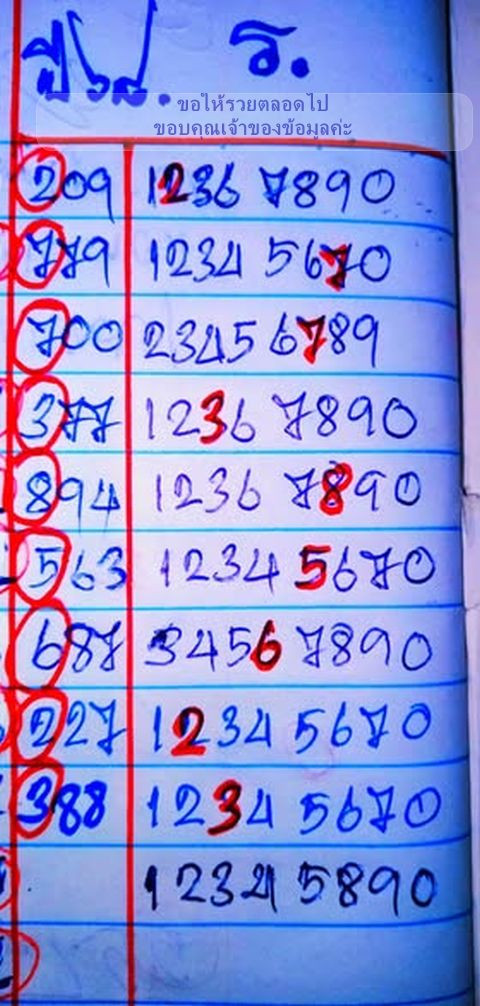 ปี ๖๘. ว.
ขอให้รวยตลอดไป
ขอบคุณเจ้าของข้อมูลค่ะ
209 1236 7890
779 1234 5670
700 2345 6789
377 1236 7890
894 1236 7890
563 1234 5670
687 3456 7890
227 1234 5670
388 1234 5670
1234 5890